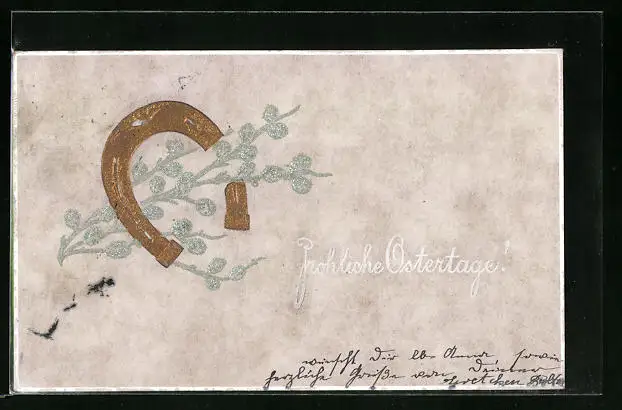 Fröhliche Ostertage!
wünscht Dir lbe Anna, sowie
herzliche Grüße von Deiner
Gretchen